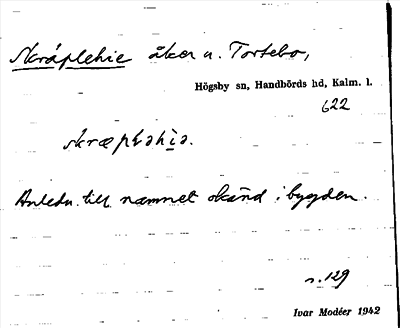 Skräplehie åker u. Tortebo,
Högsby sn, Handbörds hd, Kalm. l.
622
Anledn. till namnet okänd i bygden.
s. 129
Ivar Modéer 1942